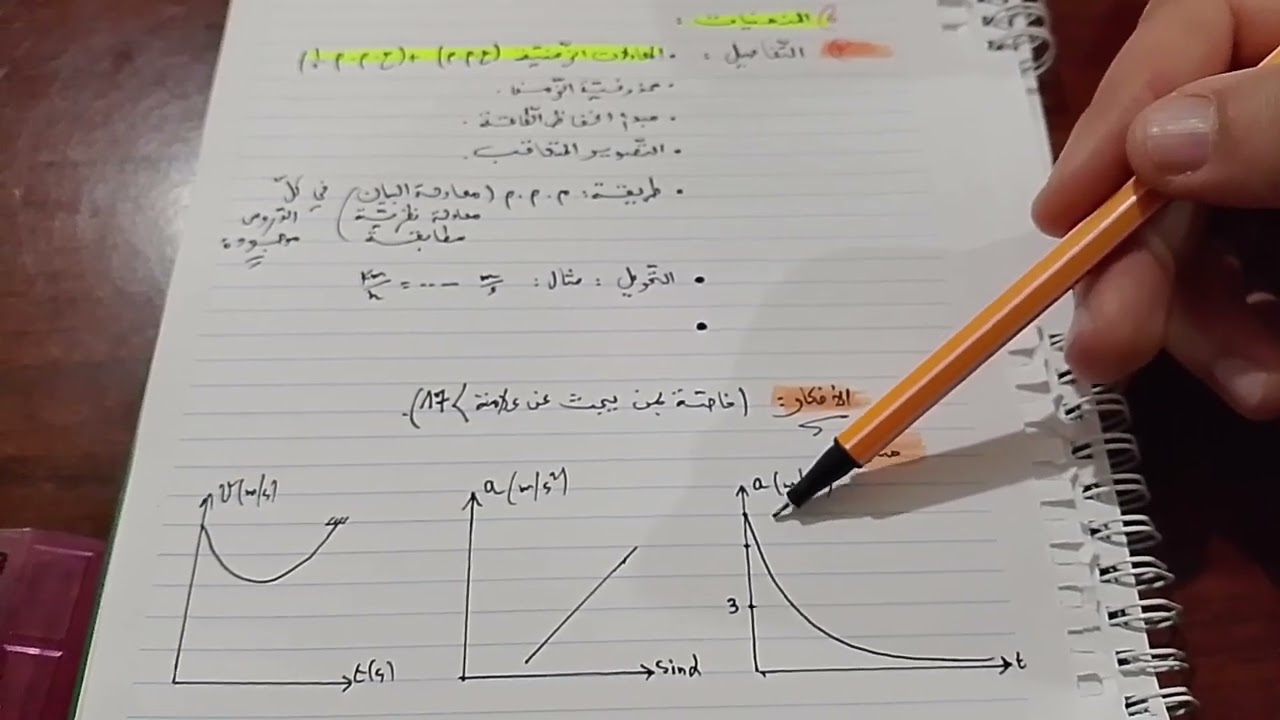 التقنيات :
التفاصيل : • المعادلات الزمنية (ح م م) + (ح م م م)
• محذوفية الزمن.
• مبدأ انحفاظ الطاقة.
• التصوير المتعاقب.
• طريقة : م . م . م (معادلة البيان) في كل
معادلة نظرية الدروس
مطابقة موجودة
• التحويل : مثال : m/s ---- = km/h
الأفكار : (خاصة بمن يبحث عن علامة > 17).
V(m/s)
t(s)
a(m/s²)
sinα
a
3
t